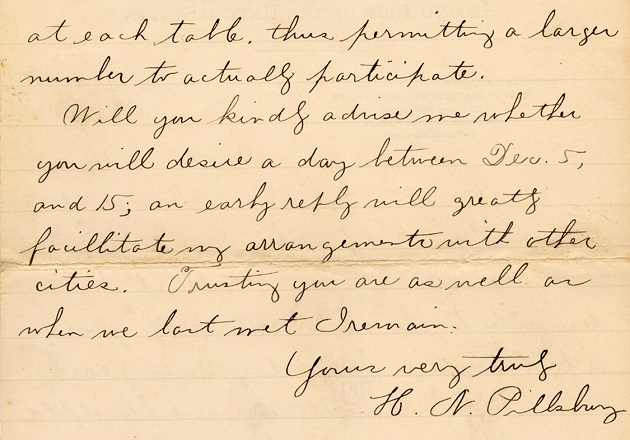 at each table, thus permitting a larger
number to actually participate.
Will you kindly advise me whether
you will desire a day between Dec. 5,
and 15; an early reply will greatly
facillitate my arrangements with other
cities. Trusting you are as well as
when we last met I remain.
Yours very truly
H. N. Pillsbury